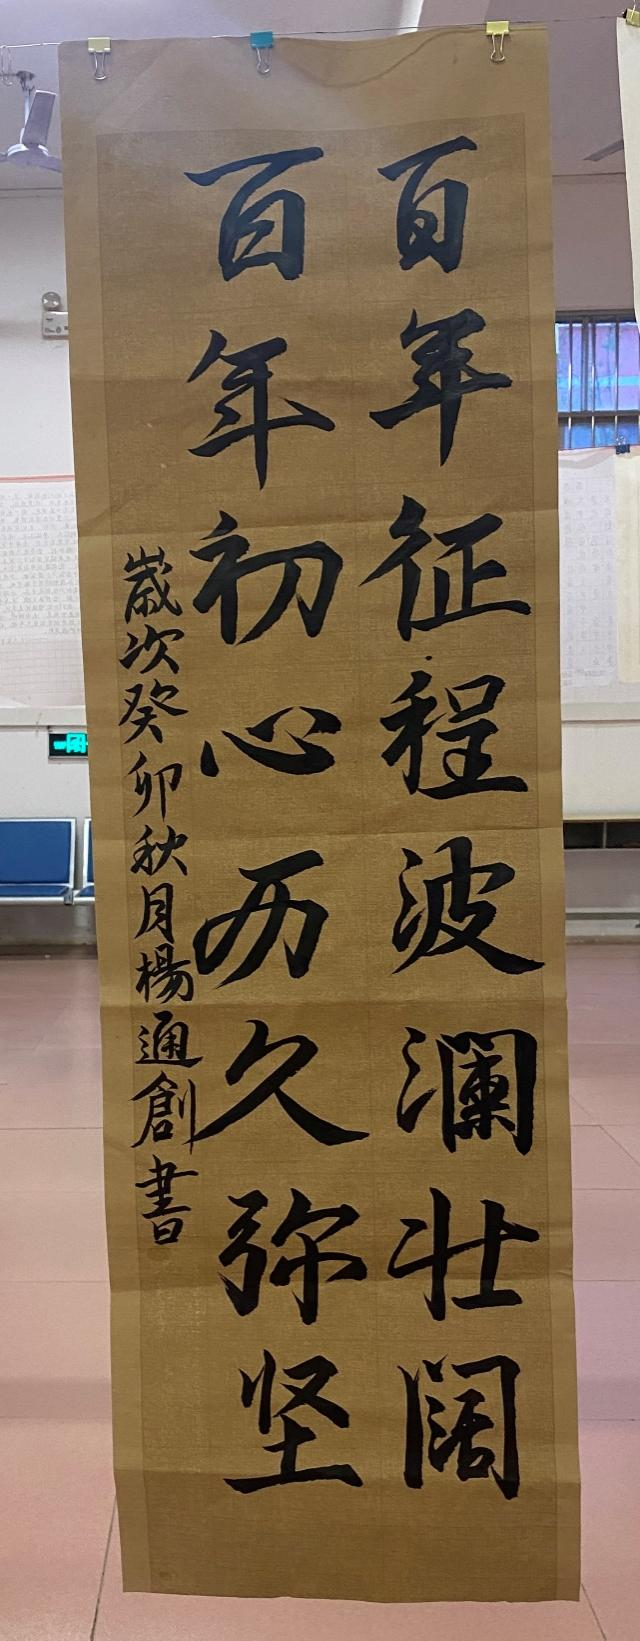 百年征程波澜壮阔
百年初心历久弥坚
歲次癸卯秋月楊通創書